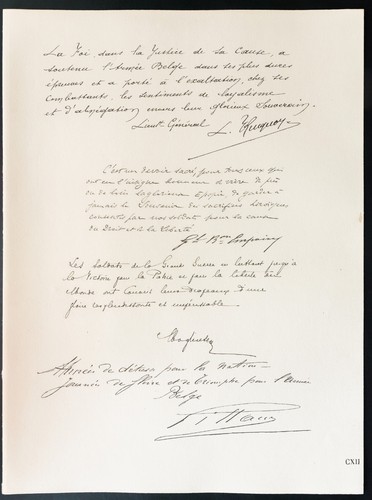 La Foi, dans la Justice de sa Cause, a
soutenu l'Armée Belge dans les plus dures
épreuves et a porté à l'exaltation, chez ses
Combattants, les sentiments de loyalisme
et d'abnégation envers leur glorieux Souverain.
Lieutt Général
C'est un devoir sacré, pour tous ceux qui
ont eu l'insigne honneur de vivre de près
ou de loin la glorieuse Epopée de guerre, de
jamais le Souvenir des sacrifices héroïques
consentis par nos soldats pour la cause
du Droit et de la Liberté
Gl Bon
Les soldats de la Grande Guerre en luttant jusqu'à
la Victoire pour la Patrie et pour la liberté du
Monde ont Couvert leurs Drapeaux d'une
gloire resplendissante et impérissable.
Années de détresse pour la nation
Journées de gloire et de triomphe pour l'armée
Belge
CXII